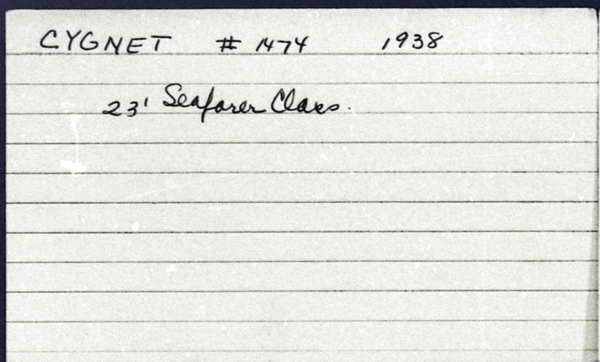 CYGNET # 1474 1938
23' Seafarer Class.